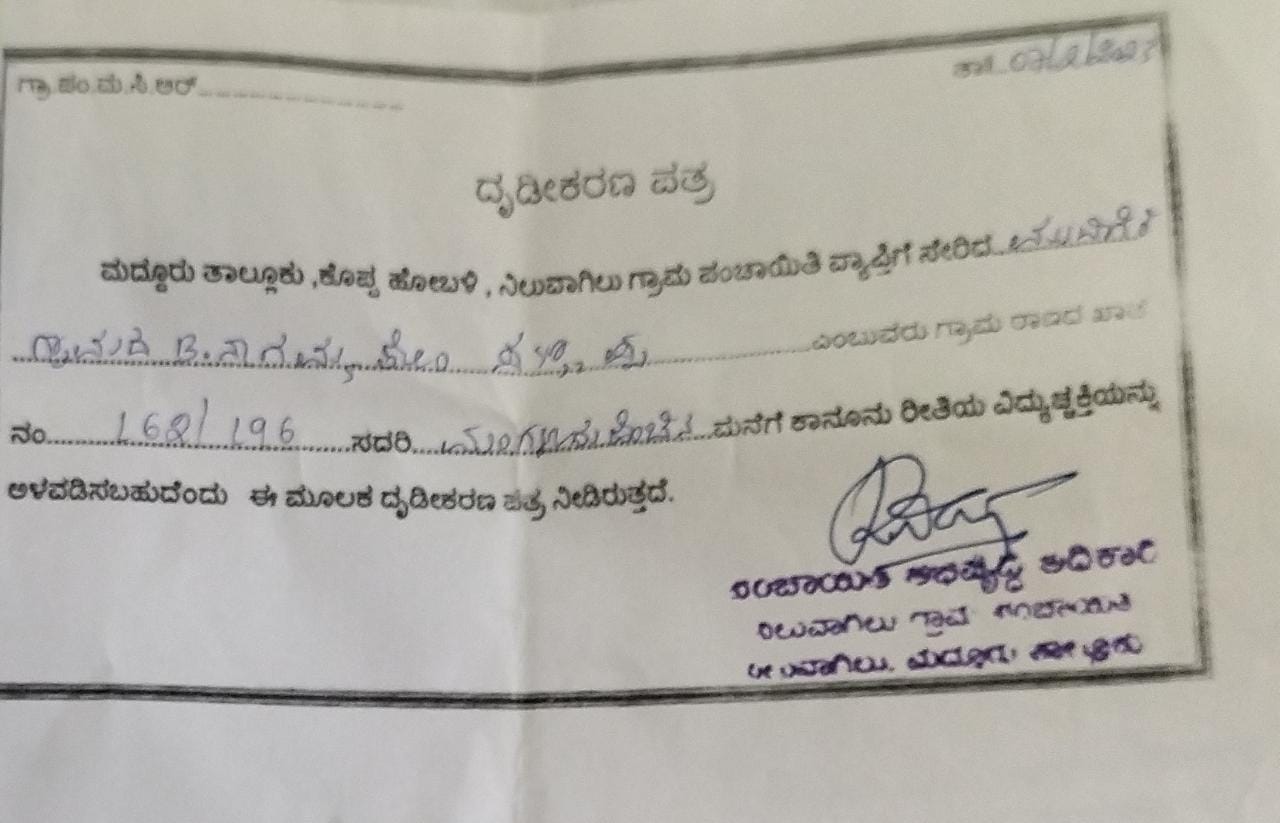 ಗ್ರಾ.ಪಂ.ಮ.ಸಿ.ಆರ್..........................
ದೃಡೀಕರಣ ಪತ್ರ
ಮದ್ದೂರು ತಾಲ್ಲೂಕು ,ಕೊಪ್ಪ ಹೋಬಳಿ , ನಿಲುವಾಗಿಲು ಗ್ರಾಮ ಪಂಚಾಯಿತಿ ವ್ಯಾಪ್ತಿಗೆ ಸೇರಿದ
ಎಂಬುವರು ಗ್ರಾಮ ಠಾಣದ ಖಾತೆ
ನಂ. 168/196 ಸದರಿ ಮನೆಗೆ ಕಾನೂನು ರೀತಿಯ ವಿದ್ಯುಚ್ಚಕ್ತಿಯನ್ನು
ಅಳವಡಿಸಬಹುದೆಂದು ಈ ಮೂಲಕ ದೃಡೀಕರಣ ಪತ್ರ ನೀಡಿರುತ್ತದೆ.
ಪಂಚಾಯಿತಿ ಅಭಿವೃದ್ಧಿ ಅಧಿಕಾರಿ
ನಿಲುವಾಗಿಲು ಗ್ರಾಮ ಪಂಚಾಯಿತಿ
ನಿಲುವಾಗಿಲು, ಮದ್ದೂರು ತಾಲ್ಲೂಕು